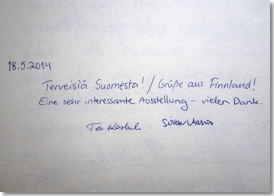 18.5.2014
Terveisiä Suomesta! / Grüße aus Finnland!
Eine sehr interessante Ausstellung - vielen Dank.